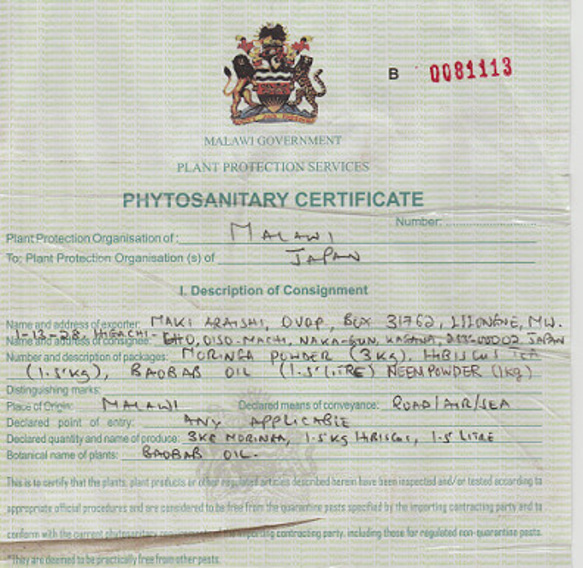 B 0081113
MALAWI GOVERNMENT
PLANT PROTECTION SERVICES
PHYTOSANITARY CERTIFICATE
Number:
Plant Protection Organisation of: MALAWI
To: Plant Protection Organisation (s) of JAPAN
I. Description of Consignment
Name and address of exporter: MAKI ARAISHI, OVOP, BOX 31762, LILONGWE, MW.
Name and address of consignee: 1-13-28, HIGACHI- OISO-MACHI, NAKA-GUN, JAPAN
Number and description of packages: MORINGA POWDER (3KG), HIBISCUS TEA
(1.5KG), BAOBAB OIL (1.5 LITRE) NEEM POWDER (1KG)
Distinguishing marks:
Place of Origin: MALAWI Declared means of conveyance: ROAD/AIR/SEA
Declared point of entry: ANY APPLICABLE
Declared quantity and name of produce: 3KG MORINGA, 1.5KG HIBISCUS, 1.5 LITRE
Botanical name of plants: BAOBAB OIL.
This is certify that the plants, plant products or other regulated articles described herein have been inspected and/or tested according to
appropriate official procedures and are considered to be free from the quarantine pests specified by the importing contracting party and to
conform with the current phytosanitary requirements of the importing contracting party, including those for regulated non-quarantine pests.
*They are deemed to be practically free from other pests.